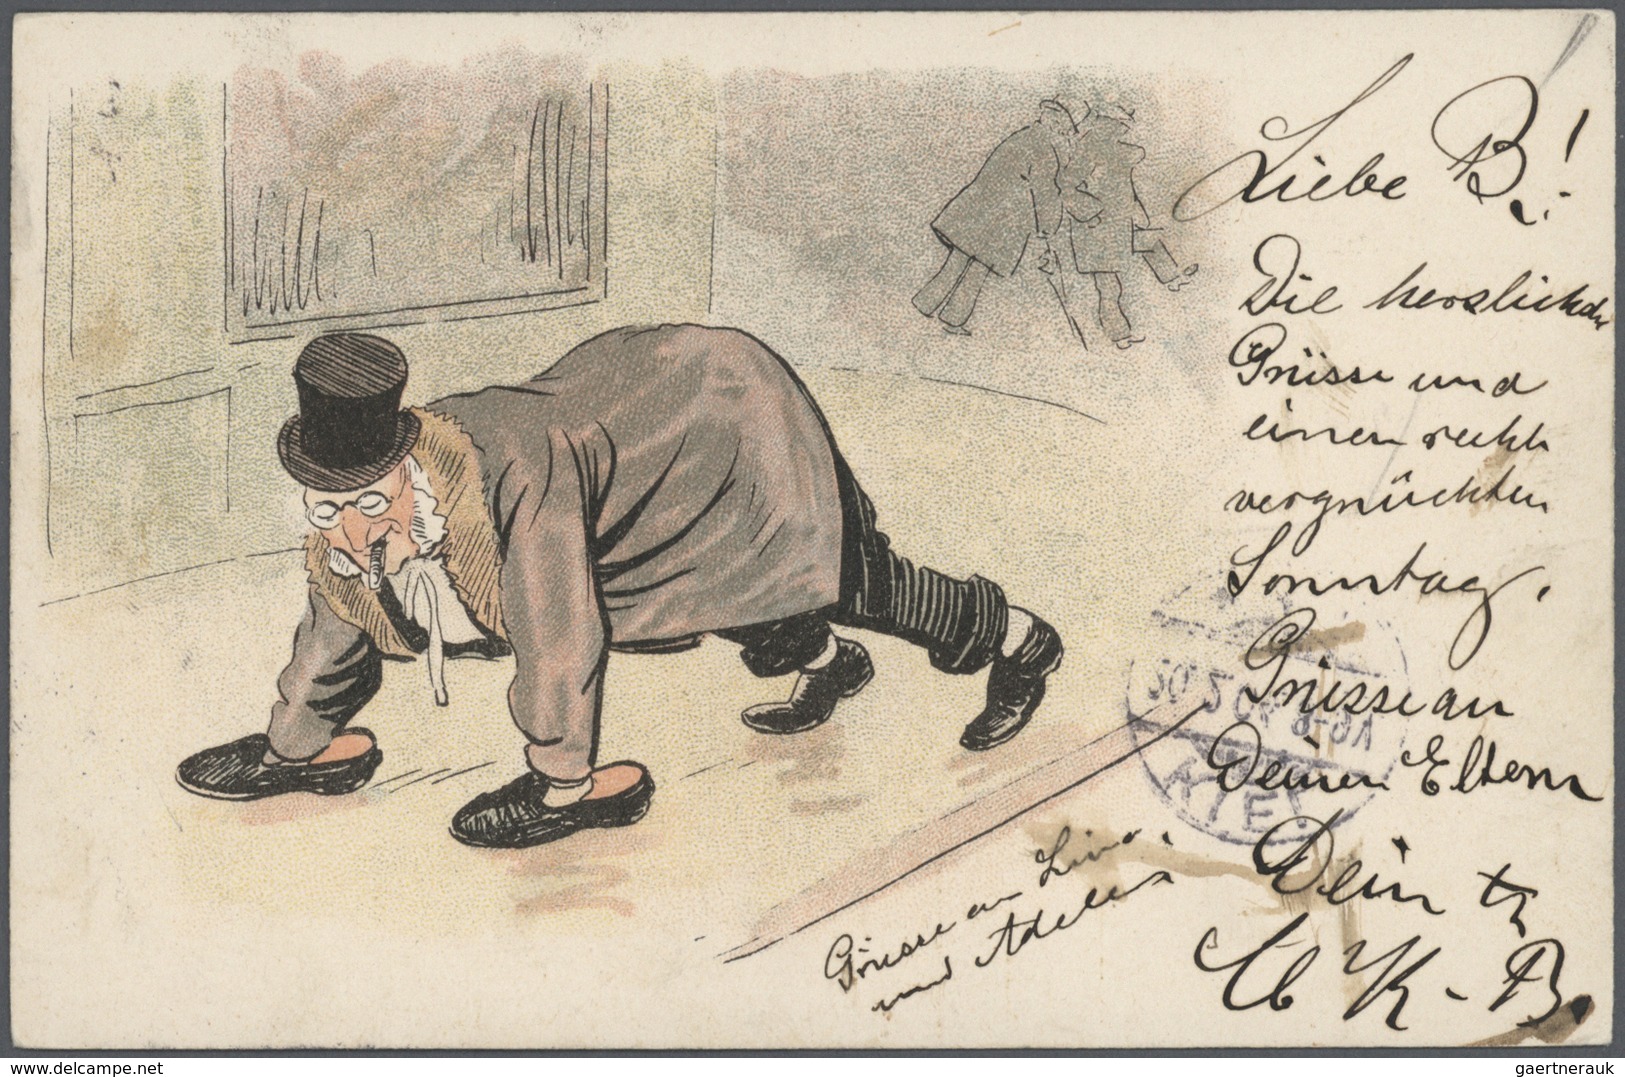 Liebe B.!
Die herzlichsten
Grüsse und
einen recht
vergnückten
Sonntag.
Grüsse an
Deinen Eltern
Dein
K-B.
Grüsse an Lina
und Adele
KIEL
delcampe.net
gaertnerauk